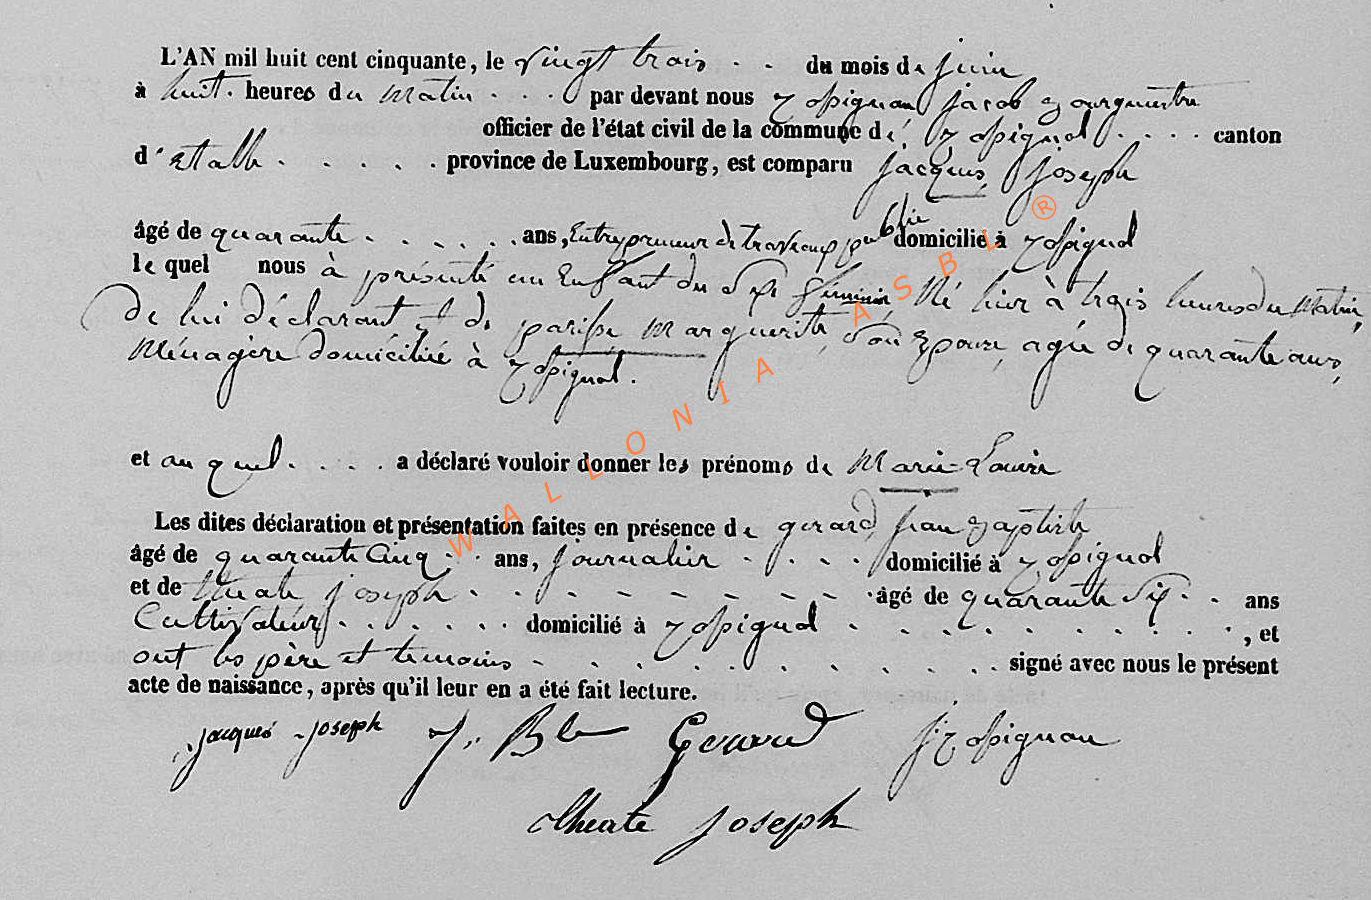 L'AN mil huit cent cinquante, le vingt trois . . du mois de juin
à huit . heures du matin . . . par devant nous Jacob
officier de l'état civil de la commune de . . . . canton
d'Etalle . . . . . province de Luxembourg, est comparu Jacques Joseph
âgé de quarante . . . . . . ans, Entrepreneur de travaux publie domicilié à
le quel nous à présenté un Enfant du Sexe féminin, Né hier à trois heures du Matin,
de lui déclarant et de Marguerite, son Epouse, agée de quarante ans,
Ménagère domiciliée à
et au quel . . . . a déclaré vouloir donner les prénoms de Marie Louise
Les dites déclaration et présentation faites en présence de gerard, jean Baptiste
âgé de quarante Cinq . . ans, journalier . . . . . domicilié à
et de theate joseph . . . - - - - - - - . âgé de quarante Six . . ans
Cultivateur . . . . . . domicilié à . . . . . . . . . . , et
ont les père et temoins . . . . . . . . . . signé avec nous le présent
acte de naissance, après qu'il leur en a été fait lecture.
jacques joseph J. B. Gerard
theate joseph
WALLONIA ASBL ®